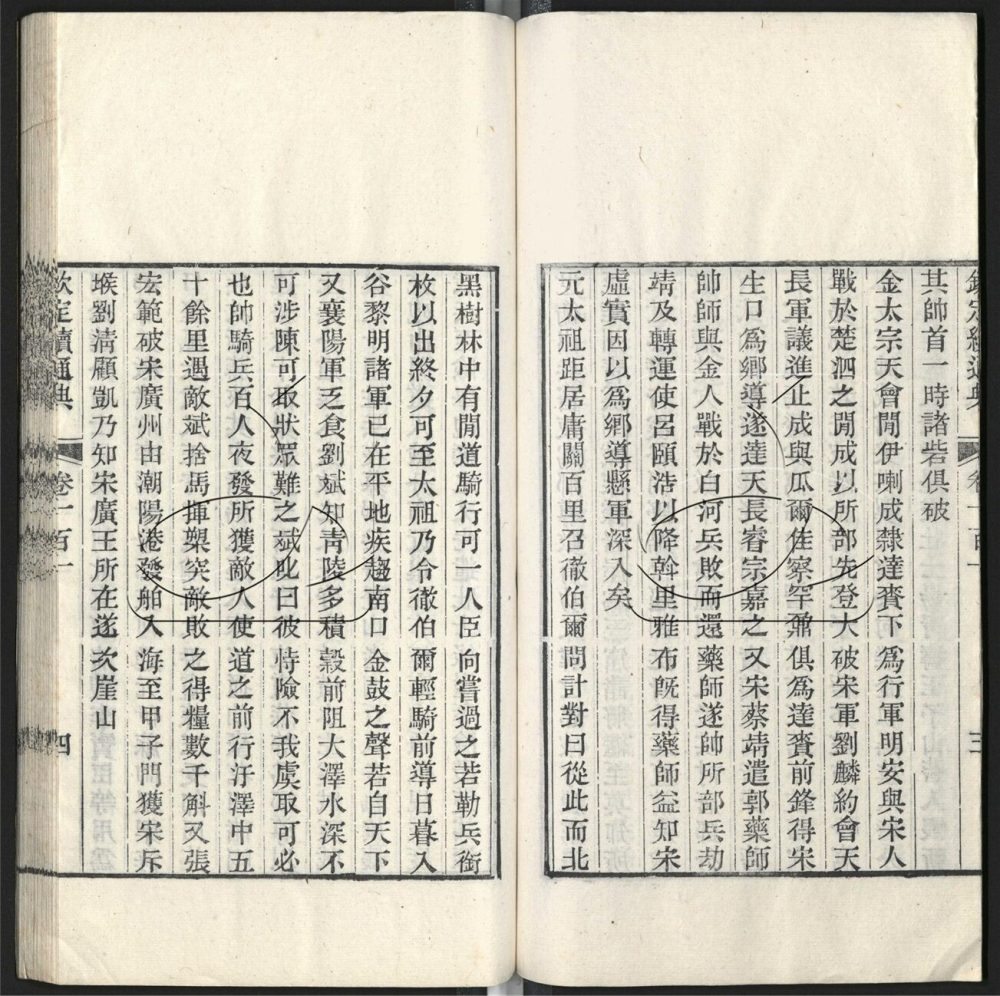 欽定續通典 卷一百一 三
其帥首一時諸砦俱破
金太宗天會閒伊喇成隸達賚下爲行軍明安與宋人
戰於楚泗之閒成以所部先登大破宋軍劉麟約會天
長軍議進止成與瓜爾佳察罕鼐俱爲達賚前鋒得宋
生口爲鄉導遂達天長睿宗嘉之又宋蔡靖遣郭藥師
帥師與金人戰於白河兵敗而還藥師遂帥所部兵劫
靖及轉運使呂頤浩以降斡里雅布旣得藥師益知宋
虛實因以爲鄉導懸軍深入矣
元太祖距居庸關百里召徹伯爾問計對曰從此而北
黑樹林中有閒道騎行可一人臣向嘗過之若勒兵銜
枚以出終夕可至太祖乃令徹伯爾輕騎前導日暮入
谷黎明諸軍已在平地疾趨南口金鼓之聲若自天下
又襄陽軍乏食劉斌知靑陵多積穀前阻大澤水深不
可涉陳可取狀眾難之斌叱曰彼恃險不我虞取可必
也帥騎兵百人夜發所獲敵人使道之前行汙澤中五
十餘里遇敵斌捨馬揮槊突敵敗之得糧數千斛又張
宏範破宋廣州由潮陽港發舶入海至甲子門獲宋斥
堠劉淸顧凱乃知宋廣王所在遂次崖山
欽定續通典 卷一百一 四